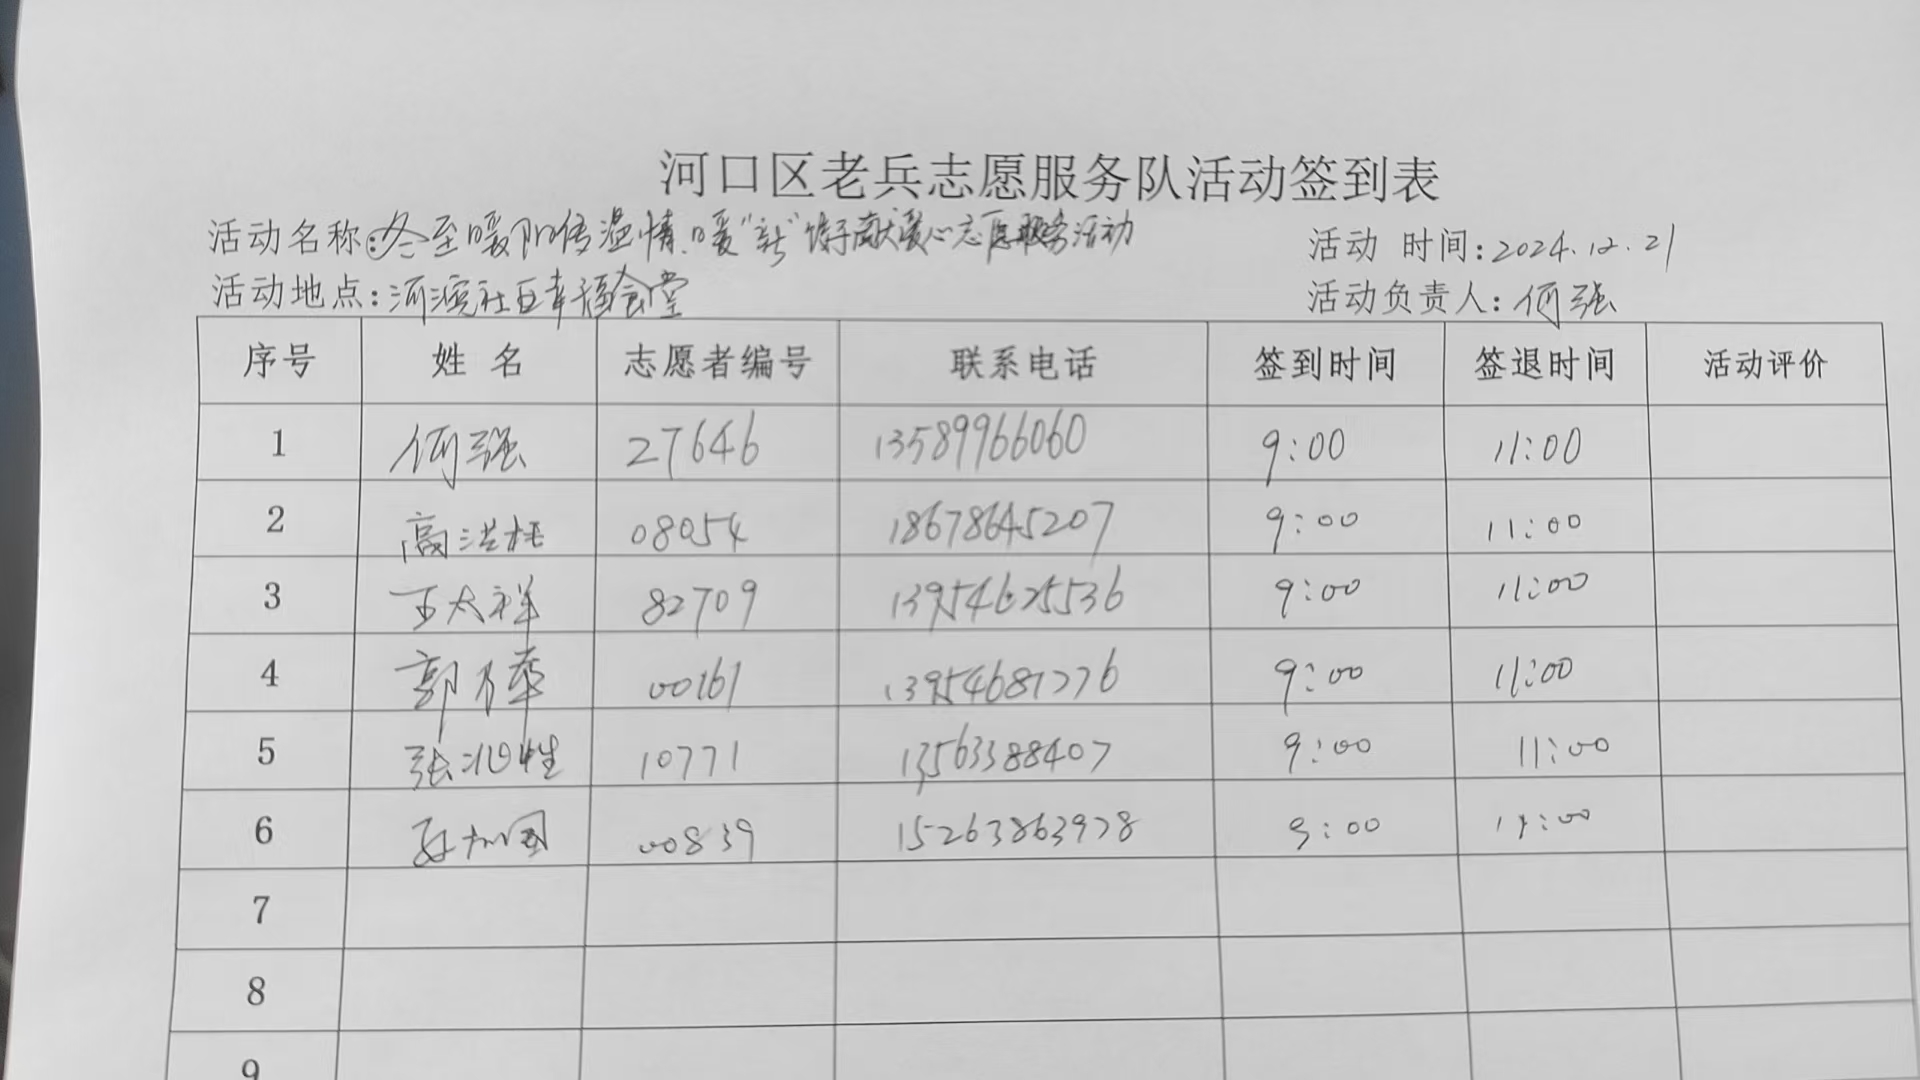 河口区老兵志愿服务队活动签到表
活动名称:冬至暖阳传温情.暖"新"饺子献爱心志愿服务活动
活动时间:2024.12.21
活动地点:河滨社区幸福食堂
活动负责人:何强
序号 姓名 志愿者编号 联系电话 签到时间 签退时间 活动评价
1 何强 27646 13589966060 9:00 11:00
2 高洪 08054 18678645207 9:00 11:00
3 王太祥 82709 13954625536 9:00 11:00
4 郭万華 00161 13954681276 9:00 11:00
5 张 10771 13563388407 9:00 11:00
6 加国 00839 15263863978 9:00 11:00
7
8
9